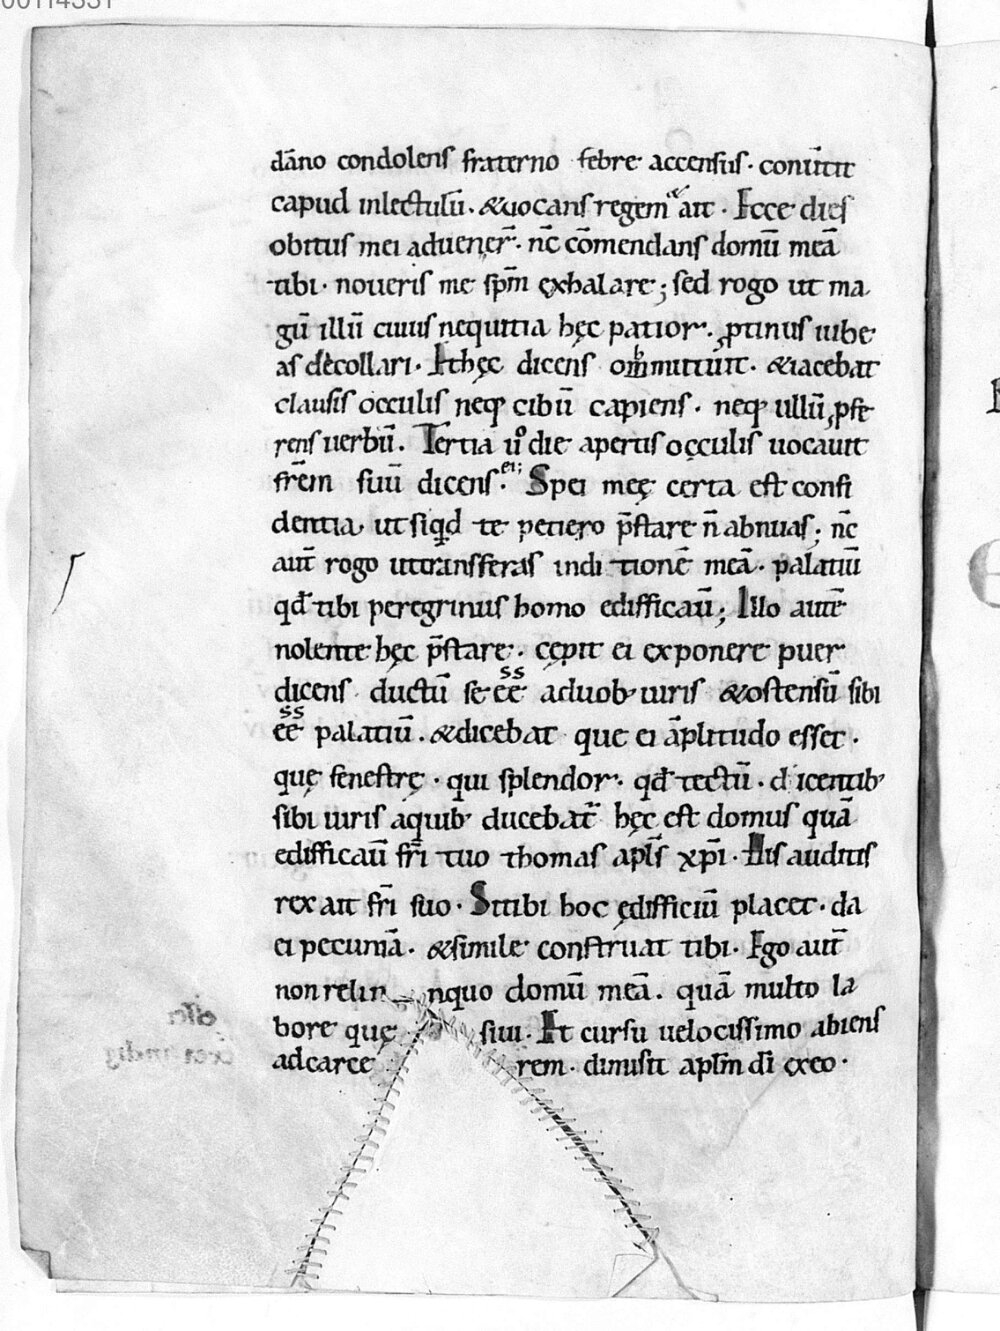 00114331
dāno condolens fraterno febre accensus. conūtit
capud inlectulū. &uocans regem ait. Ecce dies
obitus mei aduener̄. nc̄ cōmendans domū meā
tibi. noueris me sp̄m ęxhalare; sed rogo ut ma
gū illū cuius nequitia hęc patior. ꝓtinus iube
as decollari. Et hęc dicens obmutuit. &iacebat
clausis occulis neq; cibū capiens. neq; ullū ꝓfe
rens uerbū. Tertia u͛o die apertis occulis uocauit
frēm suū dicens ei; Spei meę certa est confi
dentia, ut siqd te petiero p̄stare n̄ abnuas; nc̄
aut̄ rogo ut transferas indi tionē meā. palatiū
qđ tibi peregrinus homo edifficau̅; Illo autē
nolente hęc p̄stare. cępit ei exponere puer
dicens ductū se eē aduob; uiris &ostensū sibi
eē palatiū. &dicebat que ei āplitudo esset.
quę fenestrę. qui splendor. qđ tectū. dicentib;
sibi uiris aquib; ducebat̄ hęc est domus quā
edifficau̅ fr̄i tuo thomas apl̄s xp̄i. His auditis
rex ait fr̄i suo. Sitibi hoc ędifficiū placet. da
ei pecuniā. &simile construat tibi. Ego aut̄
non relin nquo domū meā. quā multo la
bore que siui. Et cursu uelocissimo abiens
adcarce rem. dimisit apl̄m dī ęxeo.